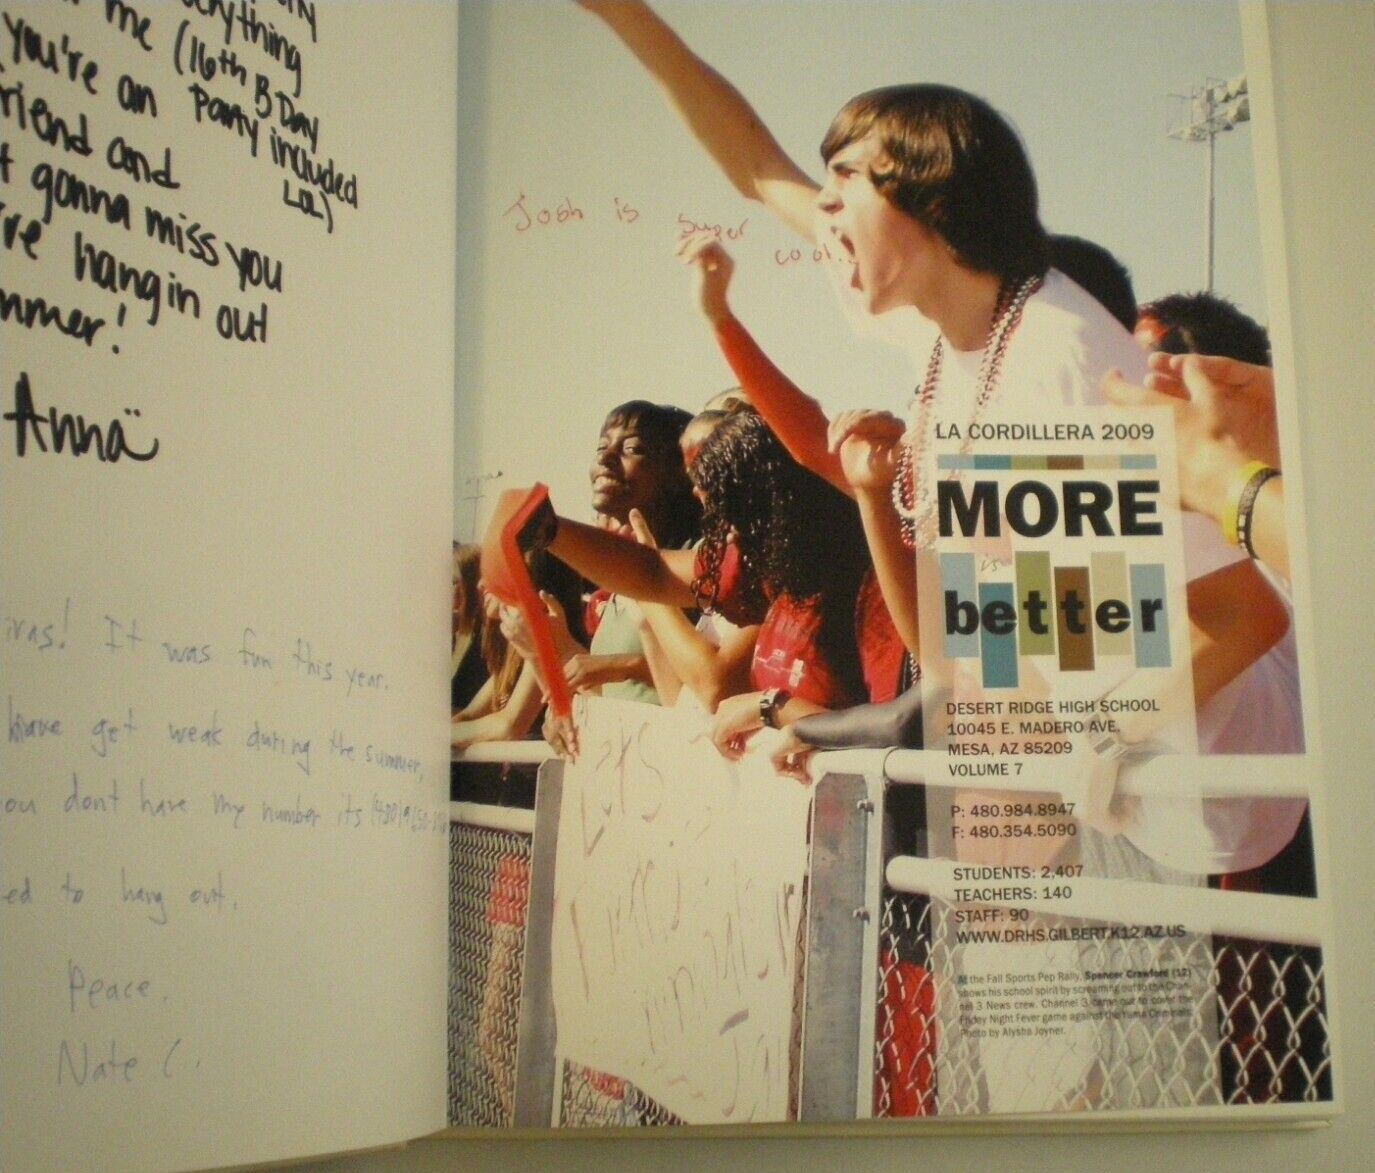 me (16th B Day
Party included
LOL)
you're an
friend and
gonna miss you
hangin out
summer!
Anna
It was fun this year.
get weak during the summer,
you dont have my number its (480)
to hang out.
Peace.
Nate C.
Josh is super cool.
LA CORDILLERA 2009
MORE
is
better
DESERT RIDGE HIGH SCHOOL
10045 E. MADERO AVE.
MESA, AZ 85209
VOLUME 7
P: 480.984.8947
F: 480.354.5090
STUDENTS: 2,407
TEACHERS: 140
STAFF: 90
WWW.DRHS.GILBERT.K12.AZ.US
At the Fall Sports Pep Rally, Spencer Crawford (12)
shows his school spirit by screaming out to the Chan-
nel 3 News crew. Channel 3 came out to cover the
Friday Night Fever game against the Yuma Criminals.
Photo by Alysha Joyner.